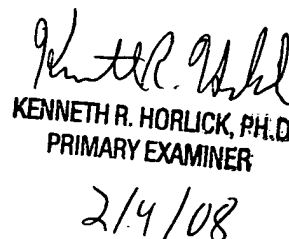 Kenneth R. Horlick
KENNETH R. HORLICK, PH.D
PRIMARY EXAMINER
2/4/08